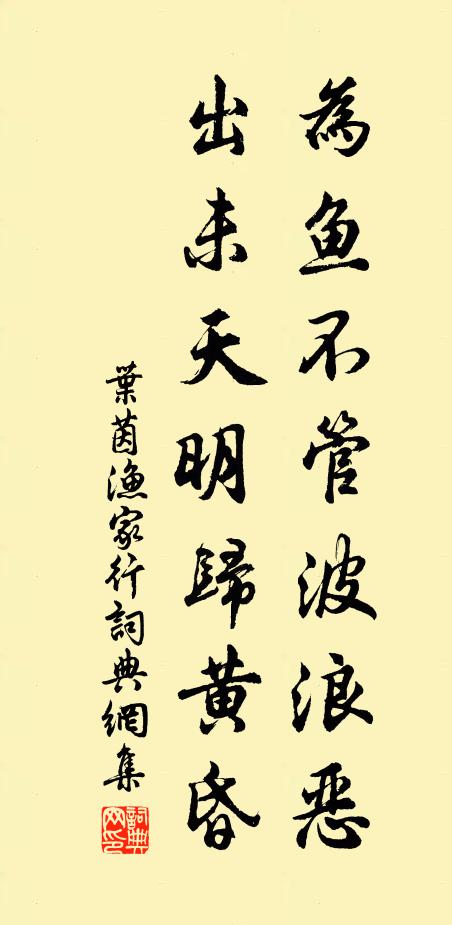 為魚不管波浪惡
出未天明歸黃昏
葉茵漁家行詞典網集
詞典網印